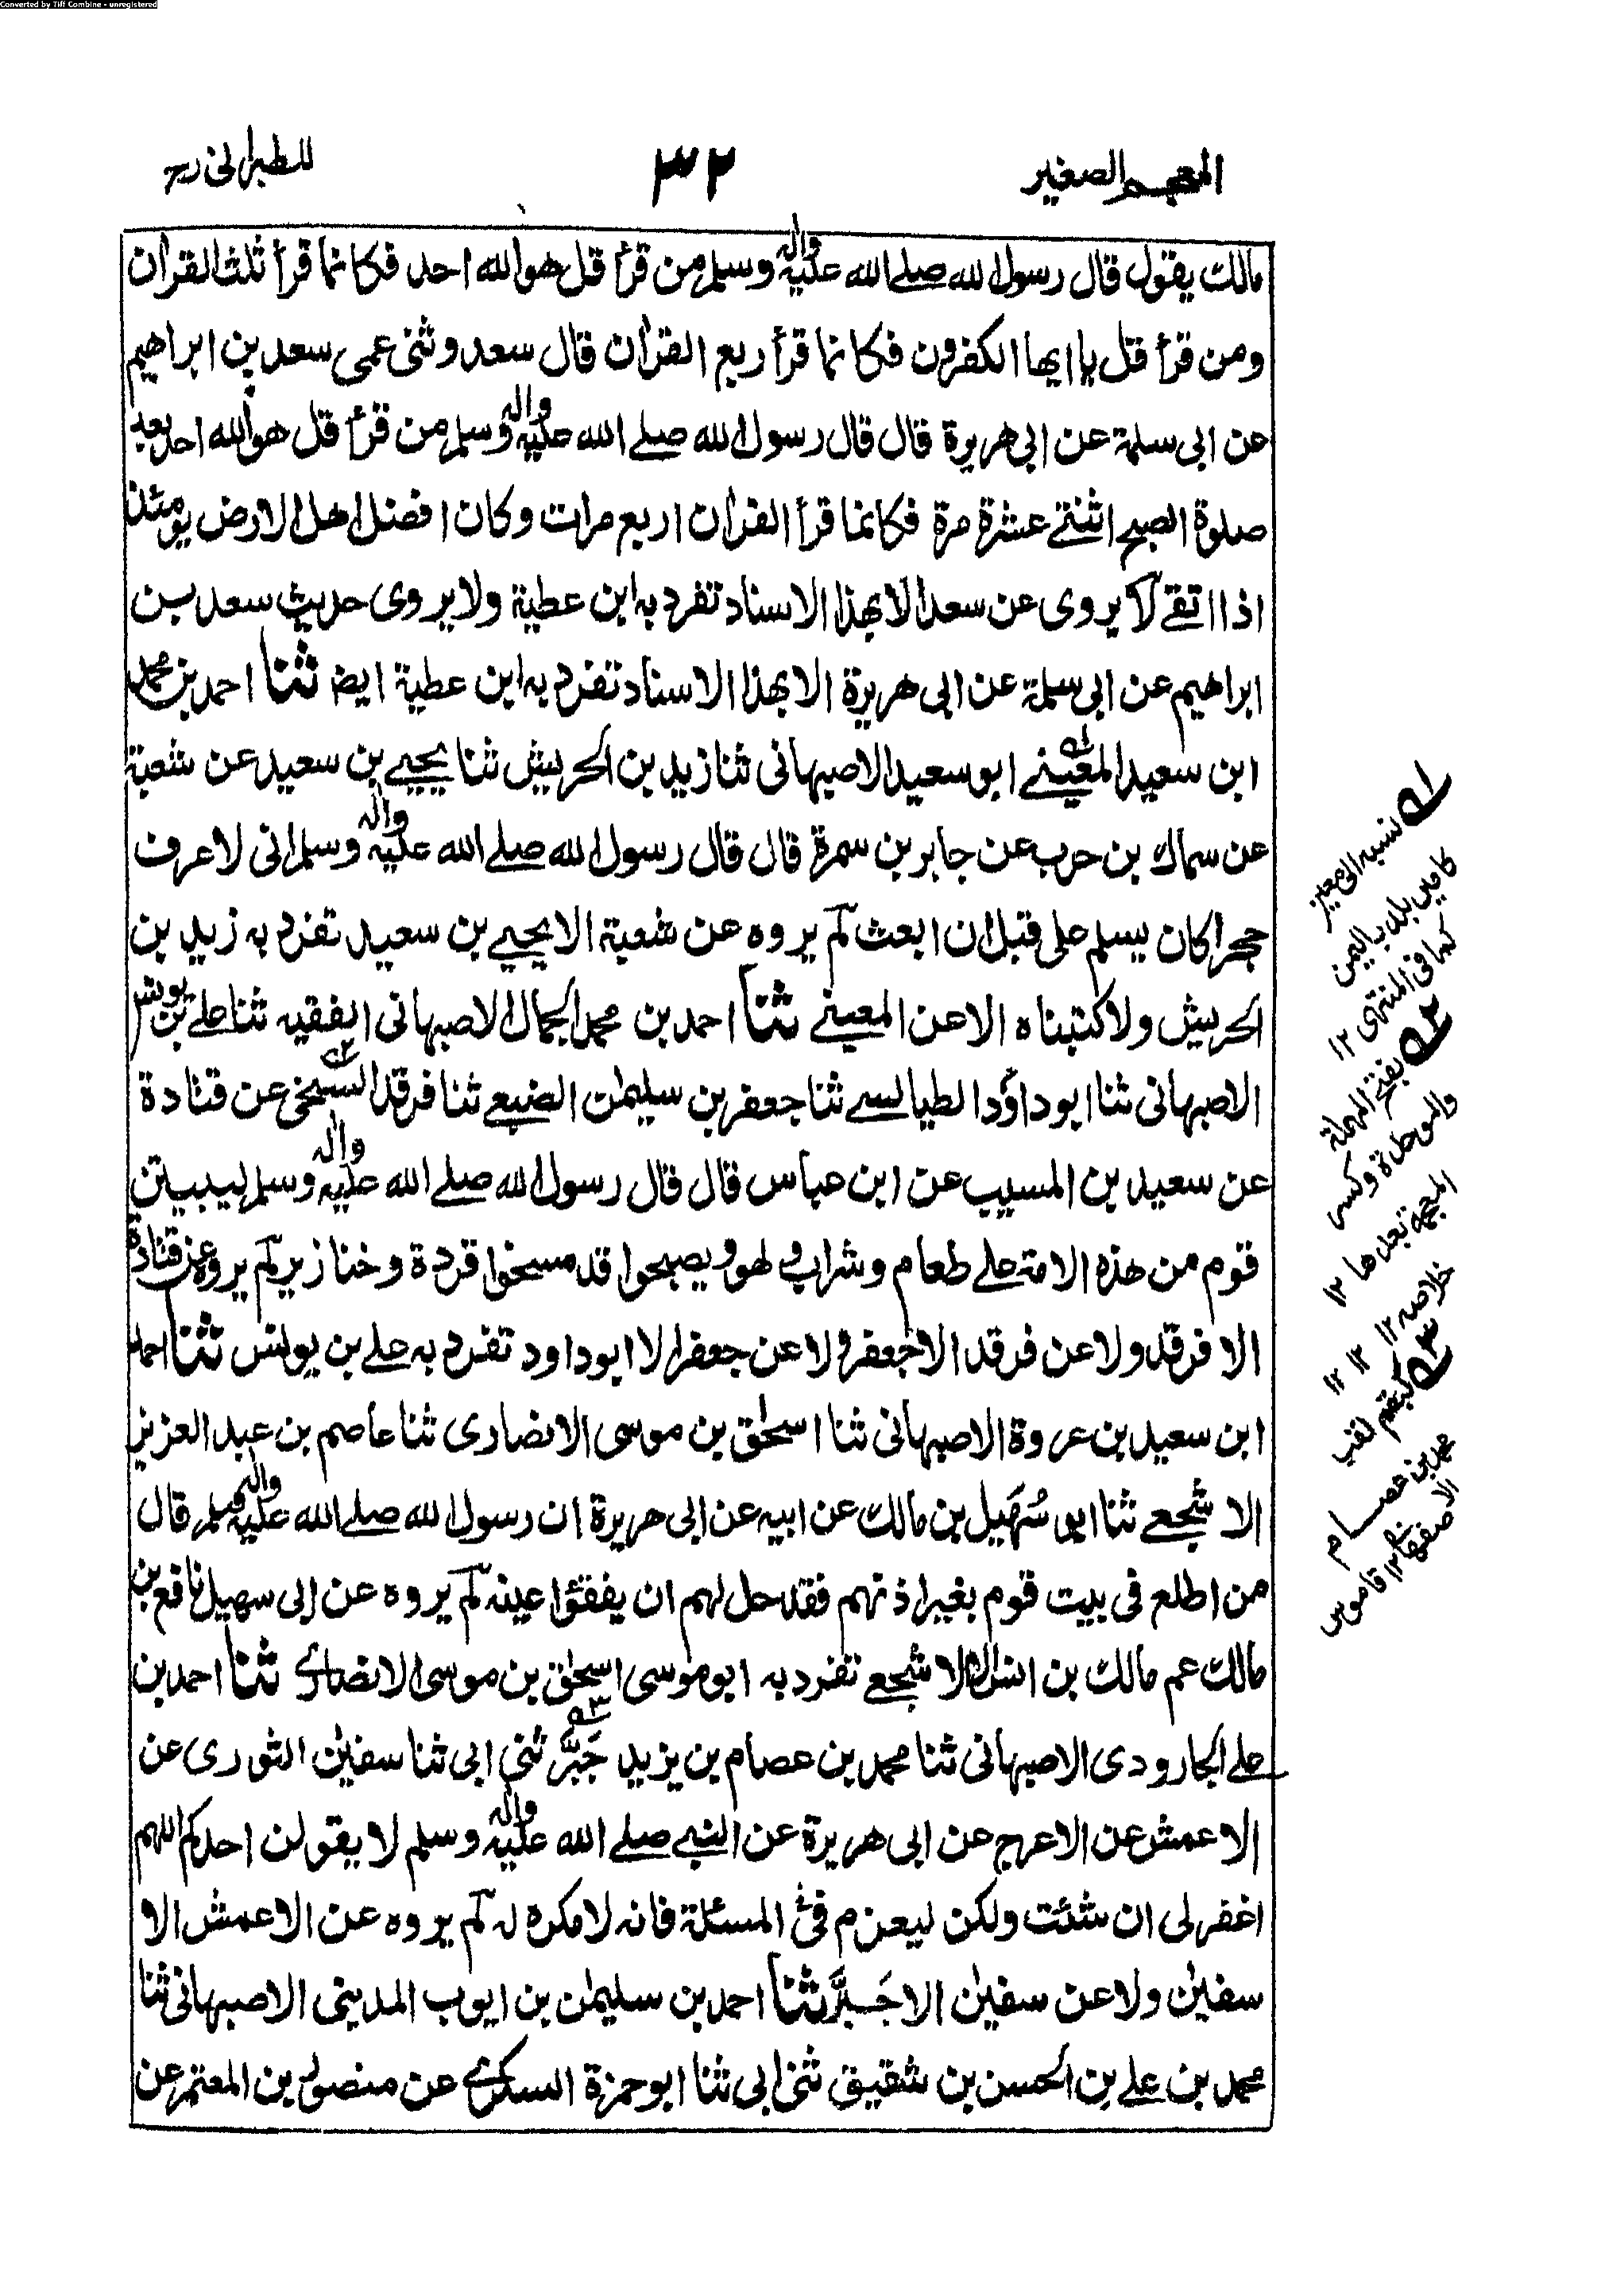 Converted by Tiff Combine - unregistered
المعجم الصغير
٣٢
للطبرانی رح
مالك يقول قال رسول الله صلے الله عليه واٰله وسلم من قرأ قل هو الله احد فكانما قرأ ثلث القراٰن
ومن قرأ قل يا ايها الكفرون فكانما قرأ ربع القراٰن قال سعد وثنی عمی سعد بن ابراهيم
عن ابی سلمة عن ابی هريرة قال قال رسول الله صلے الله عليه واٰله وسلم من قرأ قل هو الله احد بعد
صلوة الصبح اثنتے عشرة مرة فكانما قرأ القراٰن اربع مرات وكان افضل اهل الارض يومئذ
اذا اتقے لا يروی عن سعد الا بهذا الاسناد تفرد به ابن عطية ولا يروی حديث سعد بن
ابراهيم عن ابی سلمة عن ابی هريرة الا بهذا الاسناد تفرد به ابن عطية ايضا ثنا احمد بن محمد
ابن سعيد المعينے ابو سعيد الاصبهانی ثنا زيد بن الحريش ثنا يحيے بن سعيد عن شعبة
عن سماك بن حرب عن جابر بن سمرة قال قال رسول الله صلے الله عليه واٰله وسلم انی لاعرف
حجرا كان يسلم علی قبل ان ابعث لم يروه عن شعبة الا يحيے بن سعيد تفرد به زيد بن
الحريش ولا كتبناه الا عن المعينے ثنا احمد بن محمد الجمال الاصبهانی الفقيه ثنا علے بن يونس
الاصبهانی ثنا ابو داؤد الطيالسے ثنا جعفر بن سليمٰن الضبعے ثنا فرقد السبخی عن قتادة
عن سعيد بن المسيب عن ابن عباس قال قال رسول الله صلے الله عليه واٰله وسلم ليبيتن
قوم من هذه الامة علے طعام وشراب و لهو و يصبحوا قد مسخوا قردة و خنازير لم يروه عن قتادة
الا فرقد ولا عن فرقد الا جعفر ولا عن جعفر الا ابو داود تفرد به علے بن يونس ثنا احمد
ابن سعيد بن عروة الاصبهانی ثنا اسحٰق بن موسی الانصاری ثنا عاصم بن عبد العزيز
الاشجعے ثنا ابو سُهَيل بن مالك عن ابيه عن ابی هريرة ان رسول الله صلے الله عليه واٰله وسلم قال
من اطلع فی بيت قوم بغير اذنهم فقد حل لهم ان يفقئوا عينه لم يروه عن ابی سهيل نافع بن
مالك عم مالك بن انس الا الاشجعے تفرد به ابو موسی اسحٰق بن موسی الانصاری ثنا احمد بن
علے الجارودی الاصبهانی ثنا محمد بن عصام بن يزيد جَبَّر ثنی ابی ثنا سفيٰن الثوری عن
الاعمش عن الاعرج عن ابی هريرة عن النبے صلے الله عليه واٰله وسلم لا يقولن احدكم اللهم
اغفر لی ان شئت ولكن ليعزم فی المسئلة فانه لا مكره له لم يروه عن الاعمش الا
سفيٰن ولا عن سفيٰن الا جَبَّر ثنا احمد بن سليمٰن بن ايوب المدينی الاصبهانی ثنا
محمد بن علے بن الحسن بن شقيق ثنی ابی ثنا ابو حمزة السكری عن منصور بن المعتمر عن
١ه نسبه الی معين
كامين بلد باليمن
كما فی المنتهی ١٢
٢ه بفتح المهملة
والموحدة وكسر
المعجمة بعدها ١٢
خلاصه ١٢
١٢ ١٢
٣ه كبقم لقب
محمد بن عصام
الاصفهانی ١٢ قاموس